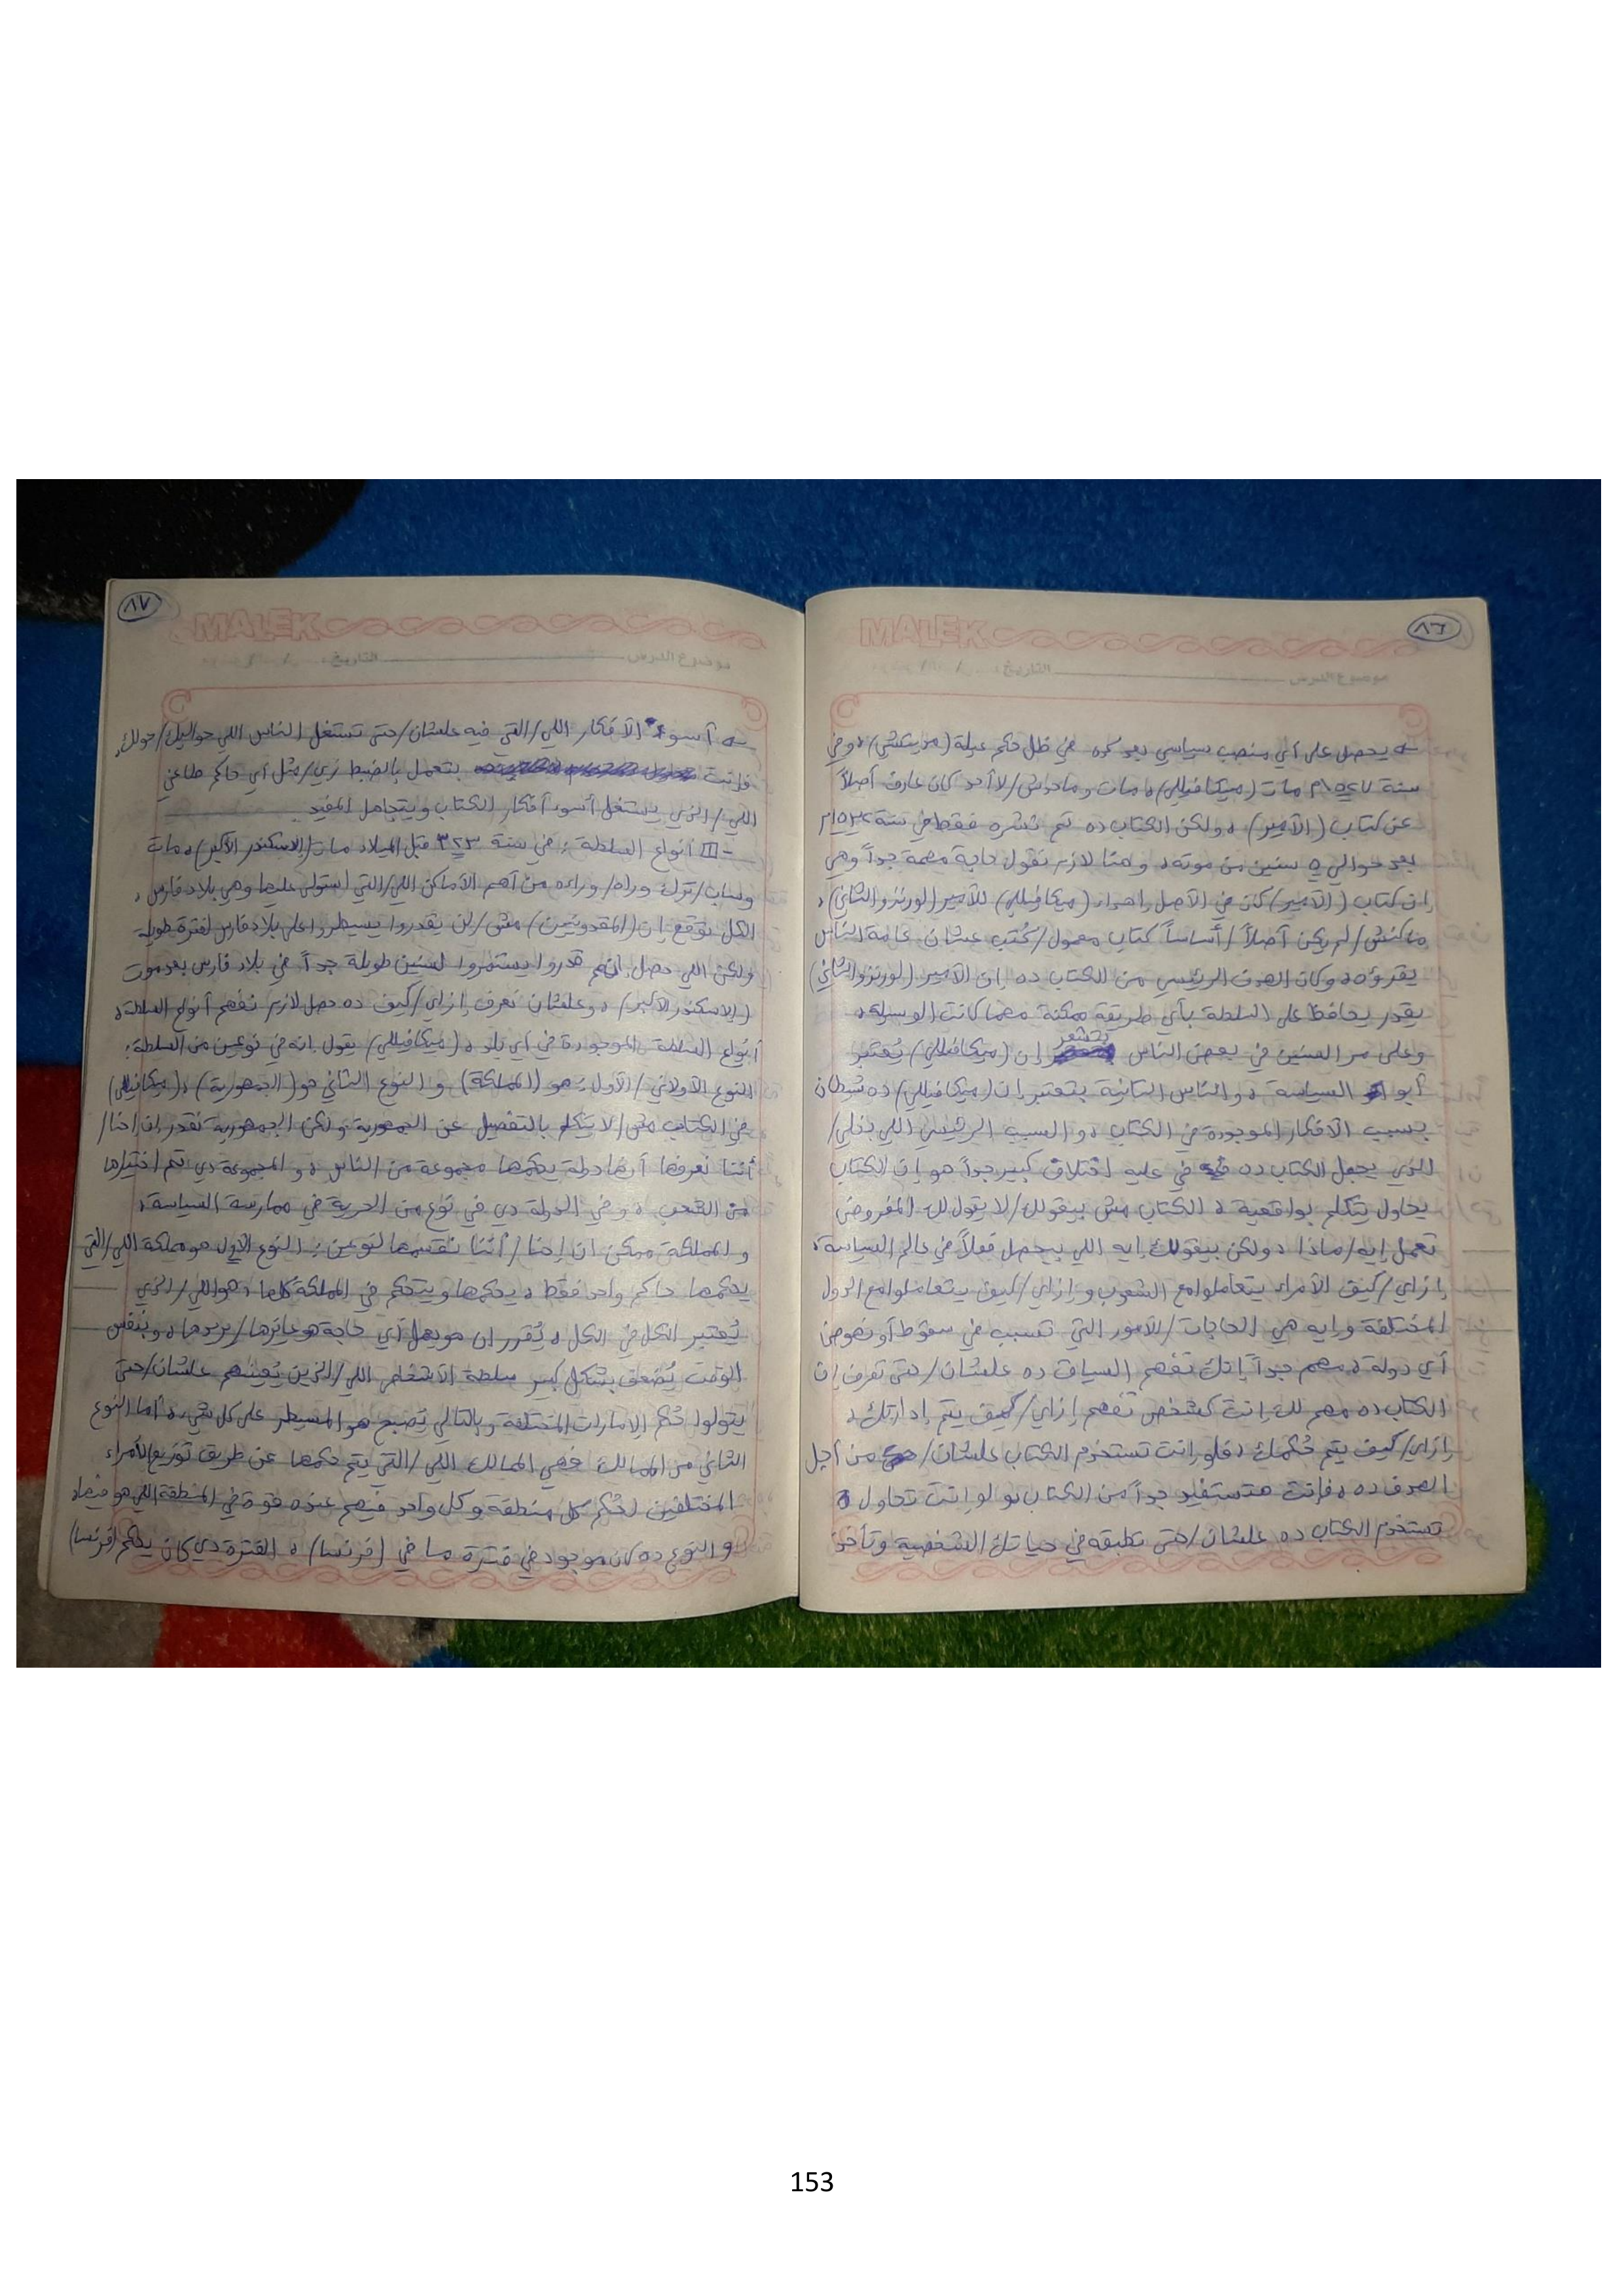 ٨٦
MALEK
موضوع الدرس التاريخ / /
يحصل على أي منصب سياسي بعد كده في ظل حكم عيلة (ميديتشي)، وفي
سنة ١٥٢٧م مات (ميكافيللي)، مات وماحدش/لا أحد كان عارف أصلاً
عن كتاب (الأمير)، ولكن الكتاب ده تم نشره فقط في سنة ١٥٣٢م
بعد حوالي ٥ سنين من موته، وهنا لازم نقول حاجة مهمة جداً وهي
إن كتاب (الأمير) كان في الأصل إهداء (ميكافيللي) للأمير (لورنزو الثاني)،
ماكنش/لم يكن أصلاً/أساساً كتاب معمول/كُتب عشان عامة الناس
يقرؤه، وكان الهدف الرئيسي من الكتاب ده إن الأمير (لورنزو الثاني)
يقدر يحافظ على السلطة بأي طريقة ممكنة مهما كانت الوسيلة،
وعلى مر السنين في بعض الناس بتشعر إن (ميكافيللي) يُعتبر
أبو السياسة، والناس التانية بتعتبر إن (ميكافيللي) ده شيطان
بسبب الأفكار الموجودة في الكتاب، والسبب الرئيسي اللي بخلي/
الذي يجعل الكتاب ده في عليه اختلاف كبير جداً هو إن الكتاب
يحاول يتكلم بواقعية، الكتاب مش بيقولك/لا يقول لك المفروض
تعمل إيه/ماذا، ولكن بيقولك إيه اللي بيحصل فعلاً في عالم السياسة،
إزاي/كيف الأمراء يتعاملوا مع الشعوب وإزاي/كيف يتعاملوا مع الدول
المختلفة وإيه هي الحاجات/الأمور التي تسبب في سقوط أو نهوض
أي دولة، مهم جداً إنك تفهم السياق ده علشان/حتى تعرف إن
الكتاب ده مهم لك إنت كشخص تفهم إزاي/كيف يتم إدارتك،
إزاي/كيف يتم حُكمك، فلو إنت تستخدم الكتاب علشان/من أجل
الهدف ده، فإنت هتستفيد جداً من الكتاب، ولو إنت تحاول
تستخدم الكتاب ده علشان/حتى تطبقه في حياتك الشخصية وتأخذ
٨٧
MALEK
موضوع الدرس التاريخ / /
أسوء الأفكار اللي/التي فيه علشان/حتى تستغل الناس اللي حواليك/حولك،
فإنت بتعمل بالضبط زي/مثل أي حاكم طاغي
اللي/الذي يستغل أسوء أفكار الكتاب ويتجاهل المفيد.
- III أنواع السلطة: في سنة ٣٢٣ قبل الميلاد مات (الإسكندر الأكبر)، مات
وساب/ترك وراه/وراءه من أهم الأماكن اللي/التي استولى عليها وهي بلاد فارس،
الكل توقع إن (المقدونيين) مش/لن يقدروا يسيطروا على بلاد فارس لفترة طويلة
ولكن اللي حصل إنهم قدروا يستمروا لسنين طويلة جداً في بلاد فارس بعد موت
(الإسكندر الأكبر)، وعلشان نعرف إزاي/كيف ده حصل لازم نفهم أنواع السلطة،
أنواع السلطة الموجودة في أي بلد، (ميكافيللي) يقول إنه في نوعين من السلطة:
النوع الأولاني/الأول: هو (المملكة) و النوع الثاني هو (الجمهورية)، (ميكافيللي)
في الكتاب مش/لا يتكلم بالتفصيل عن الجمهورية ولكن الجمهورية نقدر إن احنا/
أننا نعرفها أنها دولة يحكمها مجموعة من الناس، و المجموعة دي تم اختيارها
من الشعب، وفي الدولة دي في نوع من الحرية في ممارسة السياسة،
والمملكة ممكن إن إحنا/أننا نقسمها لنوعين: النوع الأول هو مملكة اللي/التي
يحكمها حاكم واحد فقط، يحكمها ويتحكم في المملكة كلها، هو اللي/الذي
يُعتبر الكل في الكل، يُقرر إن هو يعمل أي حاجة هو عايزها/يريدها، وبنفس
الوقت يُضعف بشكل كبير سلطة الأشخاص اللي/الذين يُعينهم علشان/حتى
يتولوا حُكم الإمارات المختلفة وبالتالي يُصبح هو المسيطر على كل شيء، أما النوع
الثاني من الممالك فهي الممالك اللي/التي يتم حكمها عن طريق توزيع الأمراء
المختلفين لحُكم كل منطقة وكل واحد فيهم عنده قوة في المنطقة اللي هو فيها،
والنوع ده كان موجود في فترة ما في (فرنسا)، الفترة دي كان يحكم (فرنسا)
153